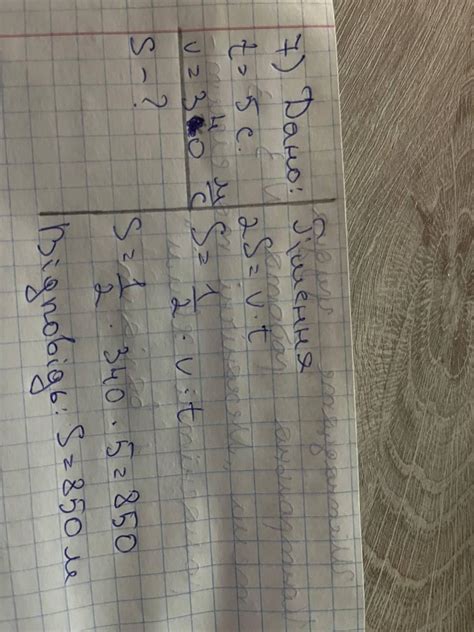 7) Дано:
t = 5 c.
v = 340 м/с
S - ?
Рішення
2S = v · t
S = 1/2 · v · t
S = 1/2 · 340 · 5 = 850
Відповідь: S = 850 м